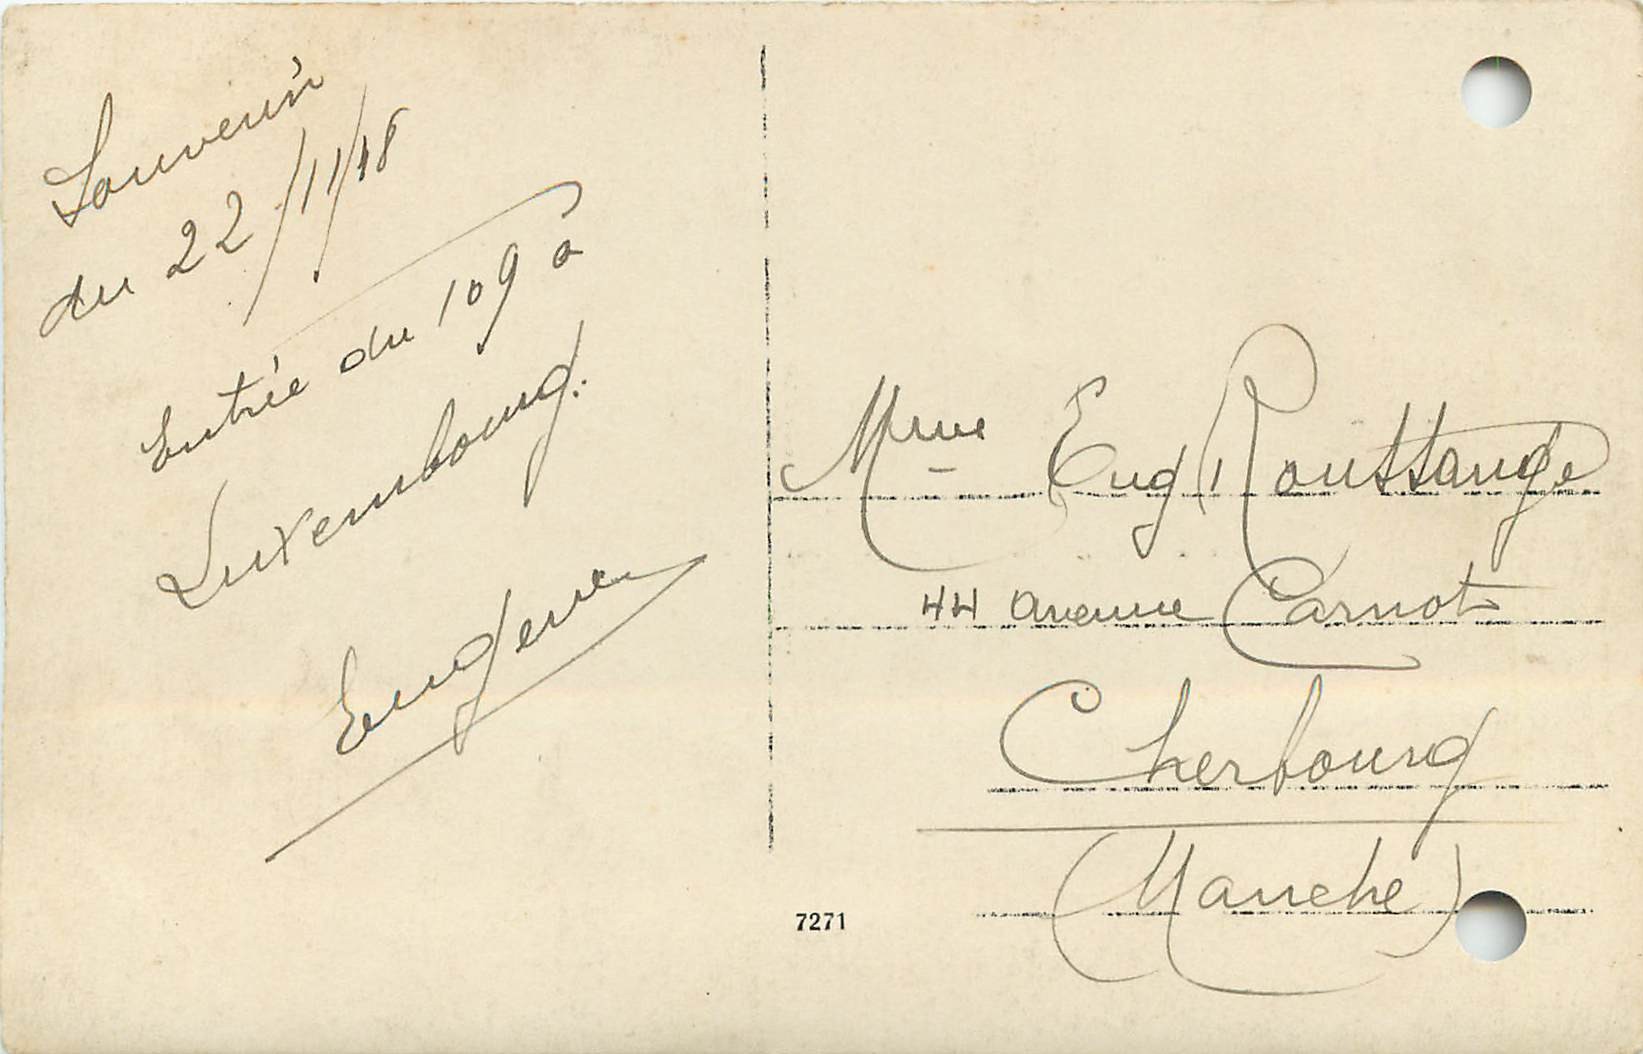 Souvenir
du 22/11/18
Entrée du 109 à
Luxembourg.
Eugène
Mme Eug Roustange
44 avenue Carnot
Cherbourg
(Manche)
7271